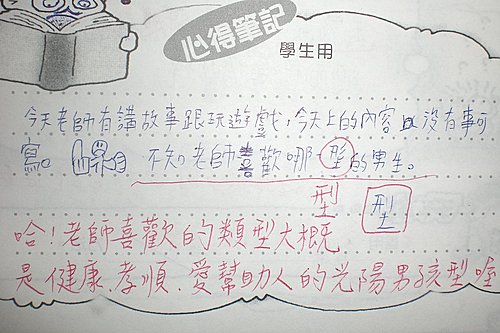 心得筆記
學生用
今天老師有講故事跟玩遊戲,今天上的內容沒有事可
寫。不知老師喜歡哪型的男生。
型 型
哈!老師喜歡的類型大概
是健康、孝順、愛幫助人的光陽男孩型喔